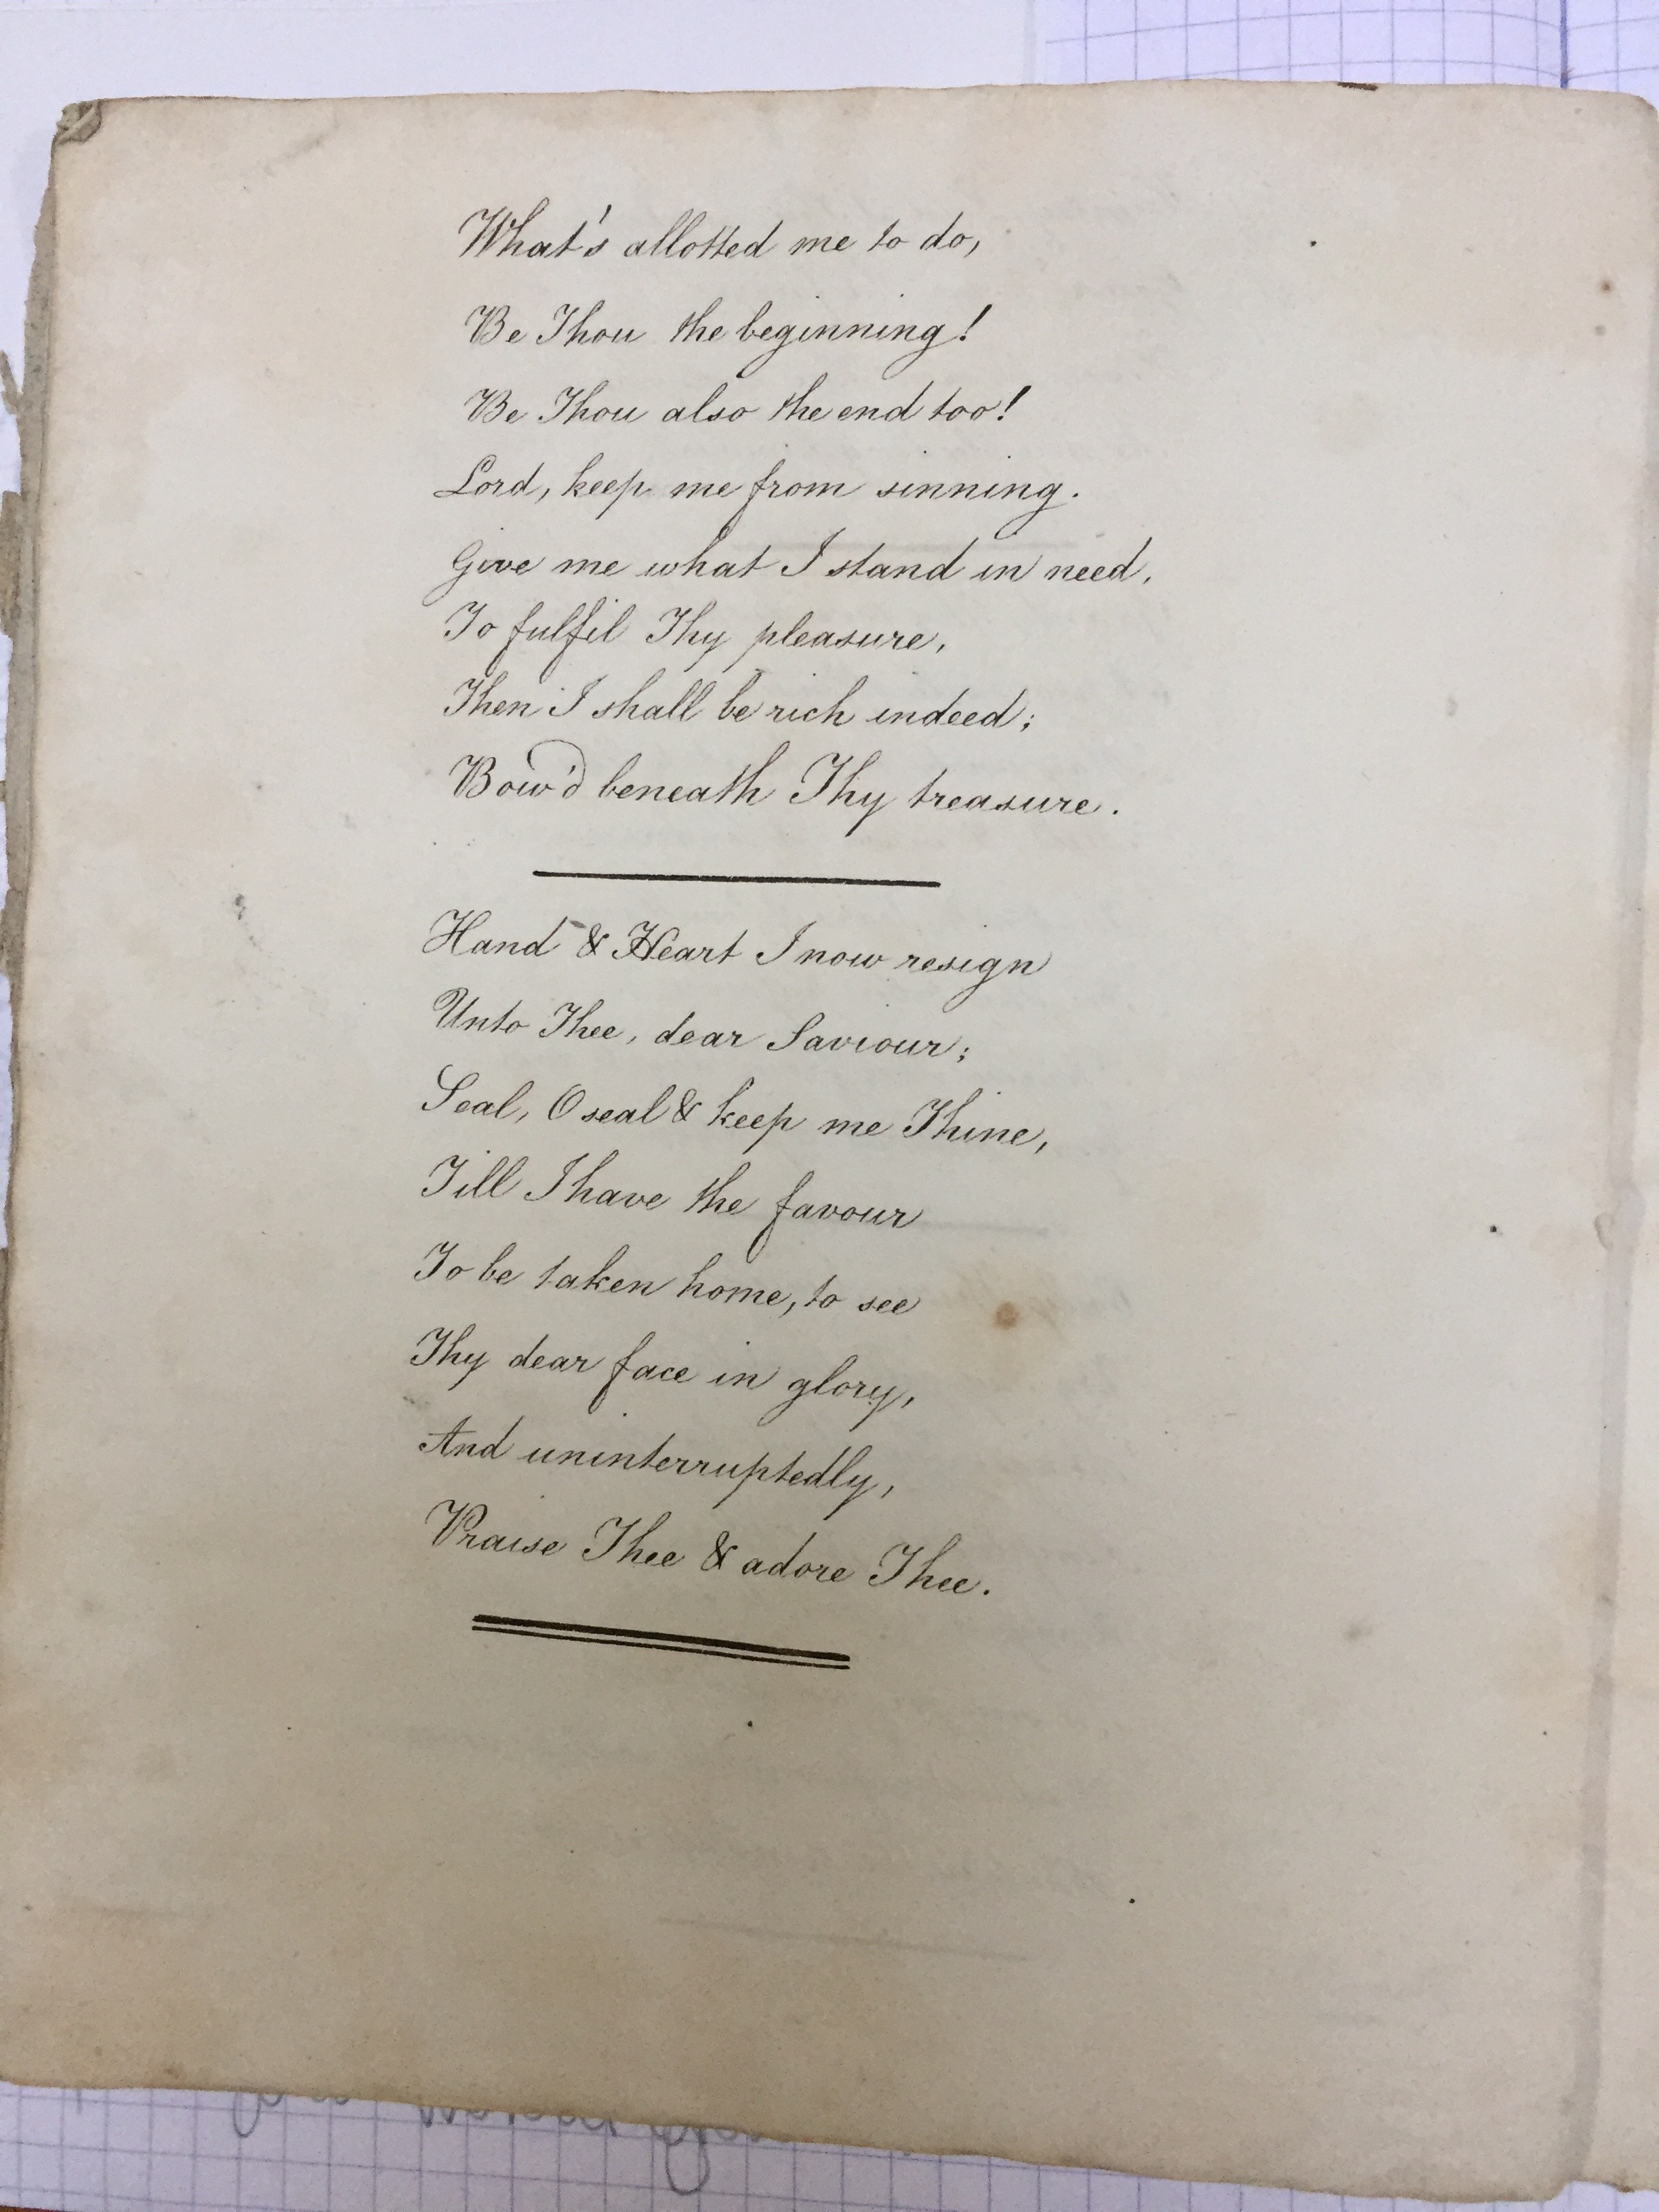 What's allotted me to do,
Be Thou the beginning!
Be Thou also the end too!
Lord, keep me from sinning.
Give me what I stand in need,
To fulfil Thy pleasure,
Then I shall be rich indeed;
Bow'd beneath Thy treasure.
Hand & Heart I now resign
Unto Thee, dear Saviour;
Seal, O seal & keep me Thine,
Till I have the favour
To be taken home, to see
Thy dear face in glory,
And uninterruptedly,
Praise Thee & adore Thee.